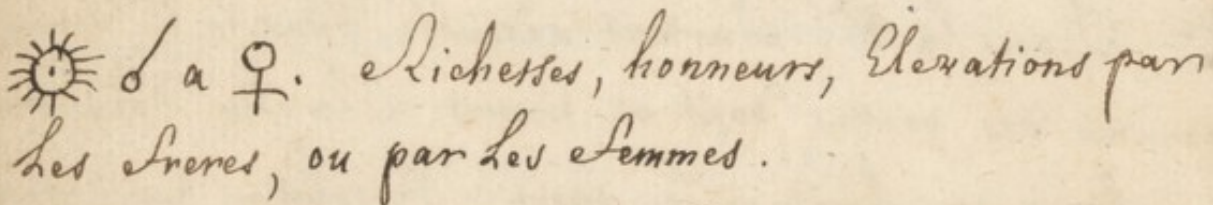 ☉ ☌ a ♀. Richesses, honneurs, Elevations par
Les freres, ou par Les femmes.